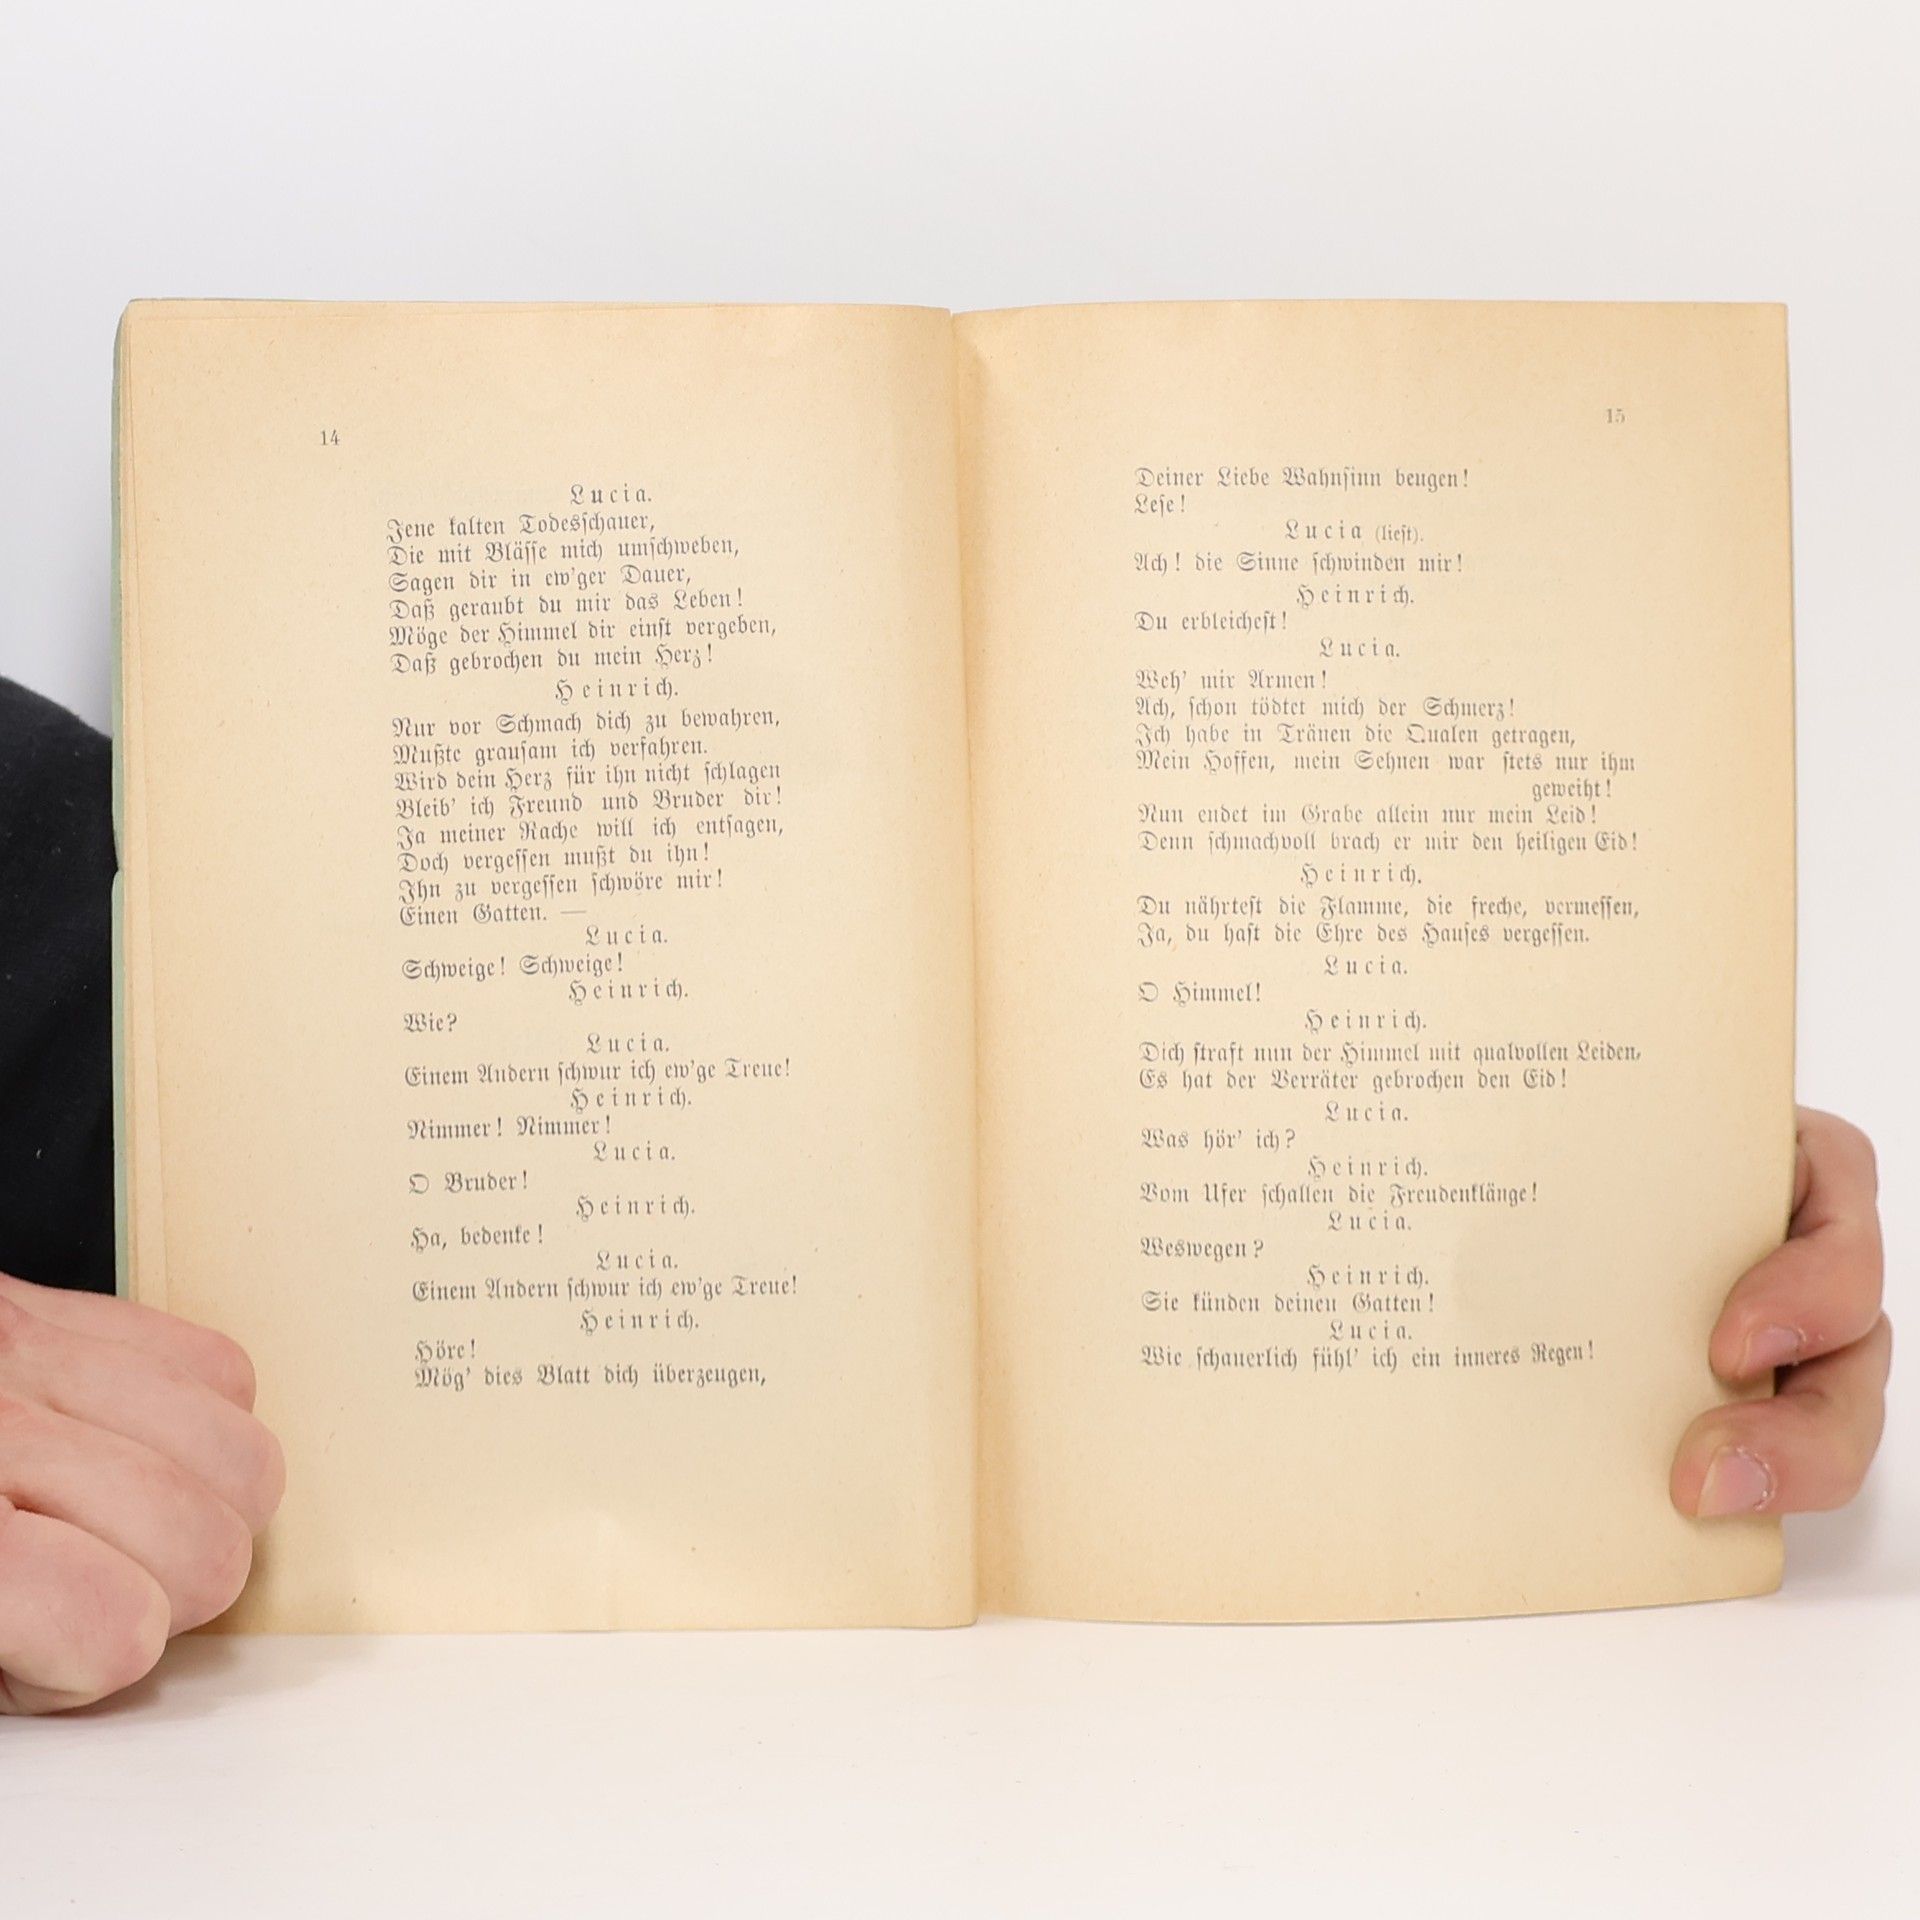 14
Lucia.
Jene kalten Todesschauer,
Die mit Blässe mich umschweben,
Sagen dir in ew'ger Dauer,
Daß geraubt du mir das Leben!
Möge der Himmel dir einst vergeben,
Daß gebrochen du mein Herz!
Heinrich.
Nur vor Schmach dich zu bewahren,
Mußte grausam ich verfahren.
Wird dein Herz für ihn nicht schlagen
Bleib' ich Freund und Bruder dir!
Ja meiner Rache will ich entsagen,
Doch vergessen mußt du ihn!
Ihn zu vergessen schwöre mir!
Einen Gatten. —
Lucia.
Schweige! Schweige!
Heinrich.
Wie?
Lucia.
Einem Andern schwur ich ew'ge Treue!
Heinrich.
Nimmer! Nimmer!
Lucia.
O Bruder!
Heinrich.
Ha, bedenke!
Lucia.
Einem Andern schwur ich ew'ge Treue!
Heinrich.
Höre!
Mög' dies Blatt dich überzeugen,
15
Deiner Liebe Wahnsinn beugen!
Lese!
Lucia (liest).
Ach! die Sinne schwinden mir!
Heinrich.
Du erbleichest!
Lucia.
Weh' mir Armen!
Ach, schon tödtet mich der Schmerz!
Ich habe in Tränen die Qualen getragen,
Mein Hoffen, mein Sehnen war stets nur ihm
geweiht!
Nun endet im Grabe allein nur mein Leid!
Denn schmachvoll brach er mir den heiligen Eid!
Heinrich.
Du nährtest die Flamme, die freche, vermessen,
Ja, du hast die Ehre des Hauses vergessen.
Lucia.
O Himmel!
Heinrich.
Dich straft nun der Himmel mit qualvollen Leiden,
Es hat der Verräter gebrochen den Eid!
Lucia.
Was hör' ich?
Heinrich.
Vom Ufer schallen die Freudenklänge!
Lucia.
Weswegen?
Heinrich.
Sie künden deinen Gatten!
Lucia.
Wie schauerlich fühl' ich ein inneres Regen!